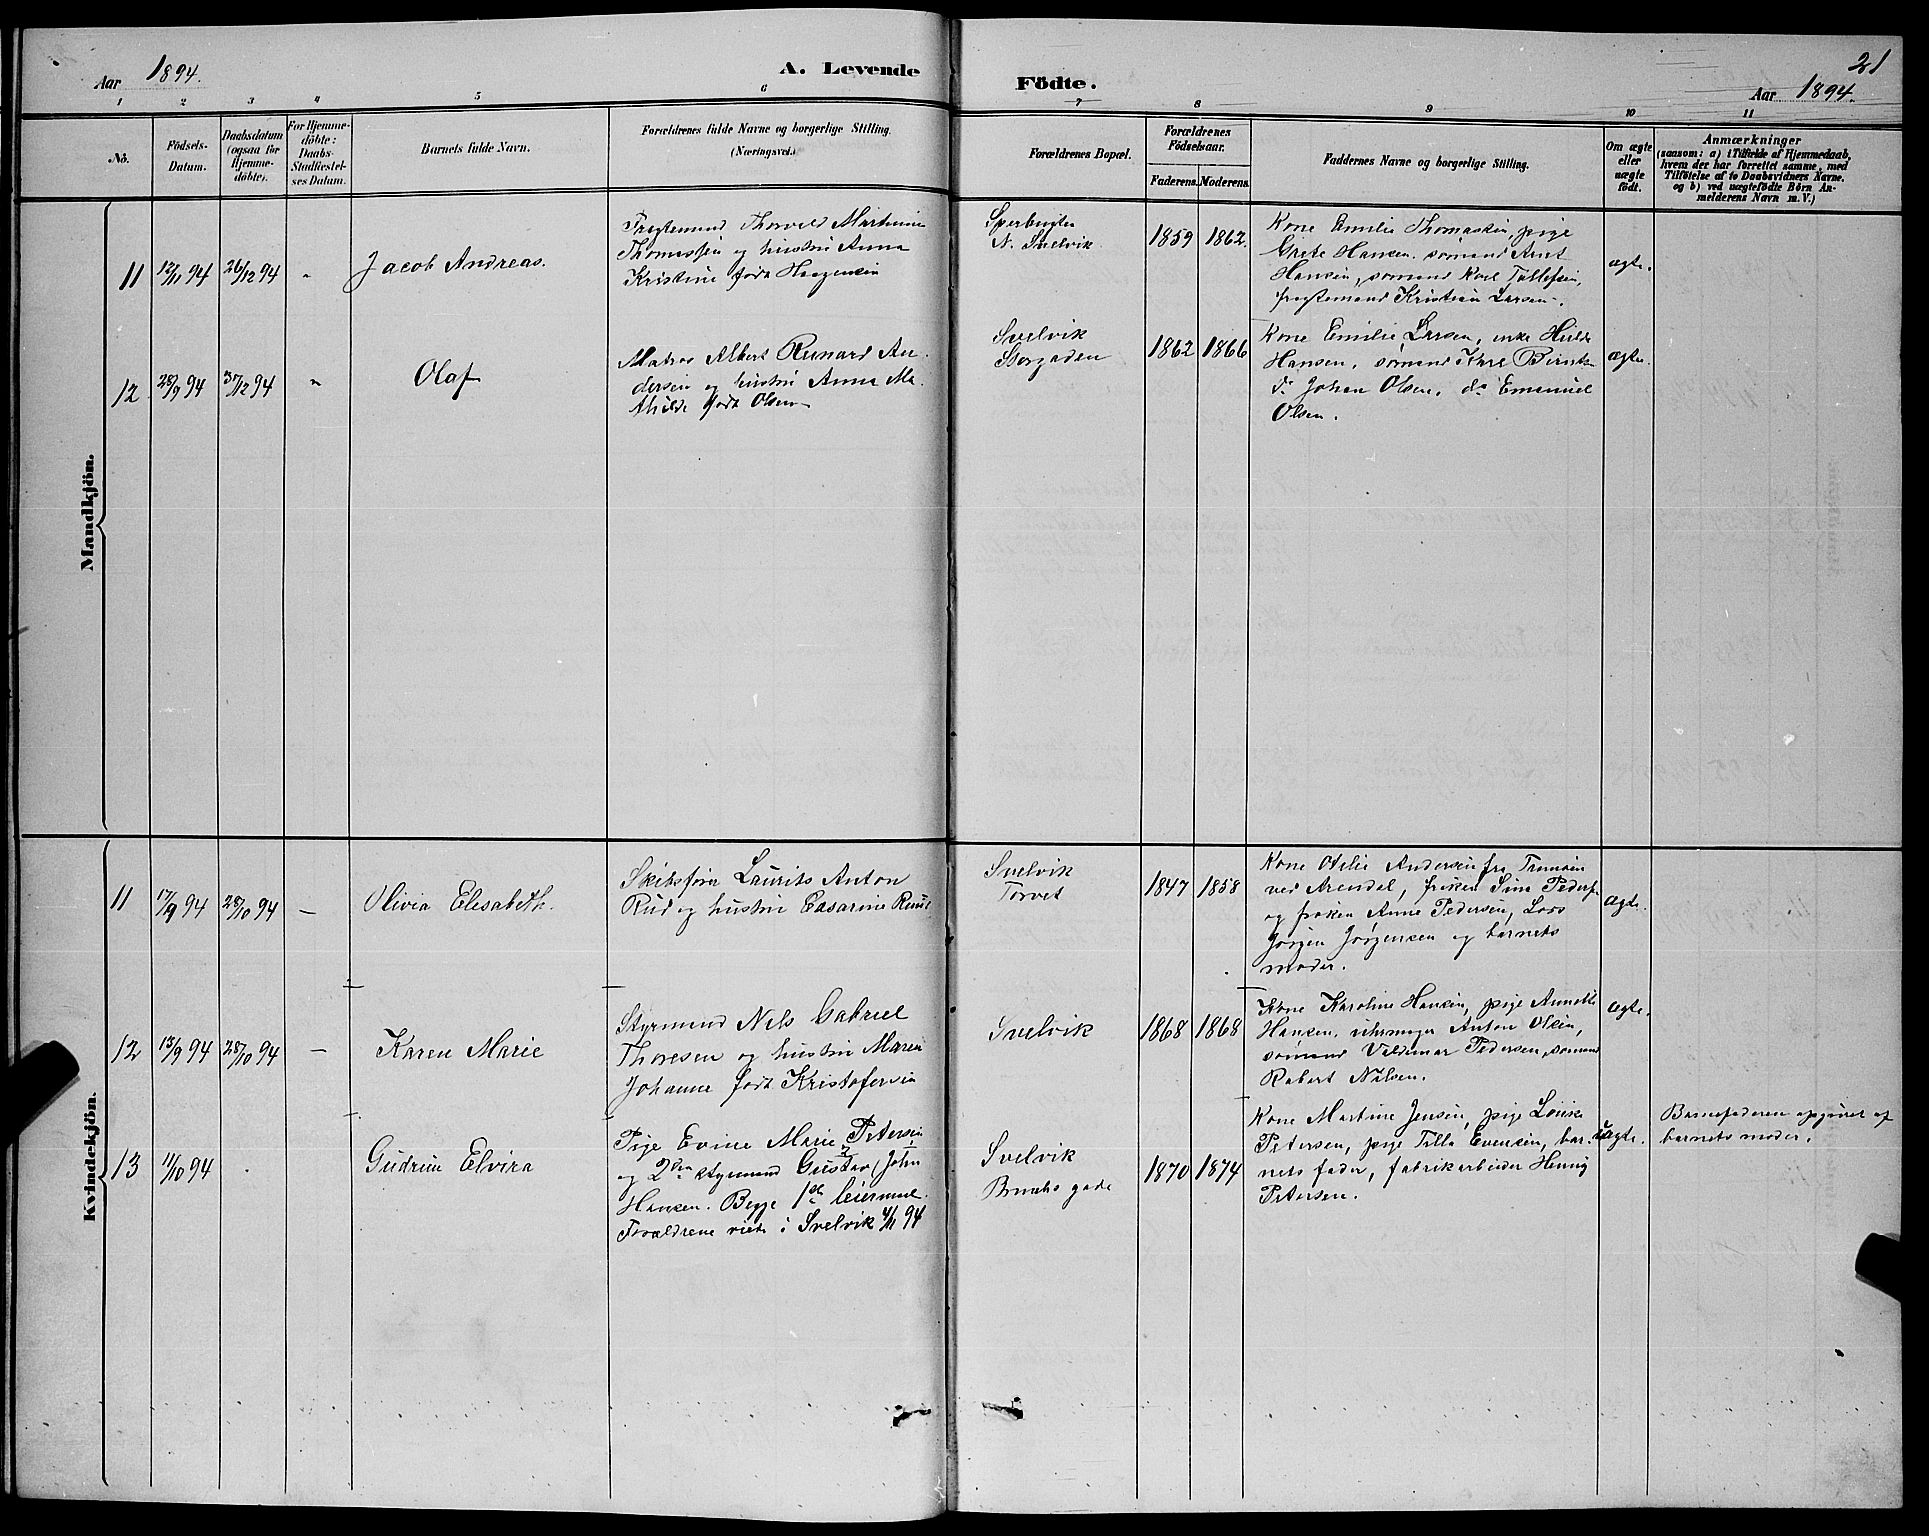 Aar 1894. A. Levende Födte. 21
Aar 1894.
1 2 3 4 5 6 7 8 9 10 11
No.
Födsels-
Datum.
Daabsdatum
(ogsaa for
Hjemme-
döbte).
For Hjemme-
döbte:
Daabs-
Stadfæstel-
ses Datum.
Barnets fulde Navn.
Forældrenes fulde Navne og borgerlige Stilling.
(Næringsvei.)
Forældrenes Bopæl.
Forældrenes
Födselsaar.
Faderens. Moderens.
Faddernes Navne og borgerlige Stilling.
Om ægte
eller
uægte
födt.
Anmærkninger
(saasom: a) i Tilfælde af Hjemmedaab,
hvem der har forrettet samme, med
Tilföielse af to Daabsvidners Navne.
og b) ved uægtefödte Börn An-
melderens Navn m. V.)
Mandkjön.
11 12/11 94 26/12 94 "
Jacob Andreas.
Fragtemand Thorvald Martinius
Thomassen og hustru Anna
Kristine født Haagensen
N. Svelvik.
1859 1862.
Kone Emilie Thomassen, pige
Grete Hansen, sømand Arnt
Hansen, sømand Karl Tollefsen,
fragtemand Kristian Larsen.
ægte.
12 28/9 94 31/12 94 "
Olaf
Matros Albert Runard An-
dersen og hustru Anna Ma-
thilde født Olsen
Svelvik
Storgaden
1862 1866
Kone Emilie Larsen, enke Hulda
Hansen, sømand Karl
do Johan Olsen, do Emanuel
Olsen.
ægte.
Kvindekjön.
11 17/9 94 28/10 94 —
Olivia Elisabeth.
Skibsfører Laurits Anton
Rud og hustru
Svelvik
Torvet
1847 1858
Kone Otilie Andersen fra
ved Arendal, frøken Sine Peders.
og frøken Anne Pedersen, Lods
Jørgen Jørgensen og barnets
moder.
ægte.
12 13/9 94 28/10 94 —
Karen Marie
Styrmand Nils Gabriel
Thoresen og hustru Maren
Johanne født Kristofersen
Svelvik
1868 1868
Kone Karoline Hansen, pige Annette
Hansen, uhrmager Anton Olsen,
sømand Valdemar Pedersen, sømand
Robert Nilsen.
ægte.
13 11/10 94
Gudrun Elvira
Pige Evine Marie Petersen
og 2den styrmand Gustav John
Hansen. Begge 1ste leiermaal.
Forældrene viet i Svelvik 4/11 94
Svelvik
gade
1870 1874
Kone Martine Jensen, pige Louise
Petersen, pige Tilla Evensen, bar-
nets fader, fabrikarbeider Henrig
Petersen.
uægte.
Barnefaderen opgivet af
barnets moder.